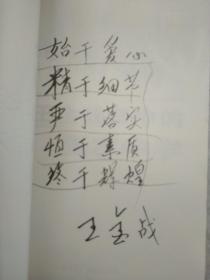 始于爱心
精于细节
严于落实
恒于素质
终于辉煌
王金战